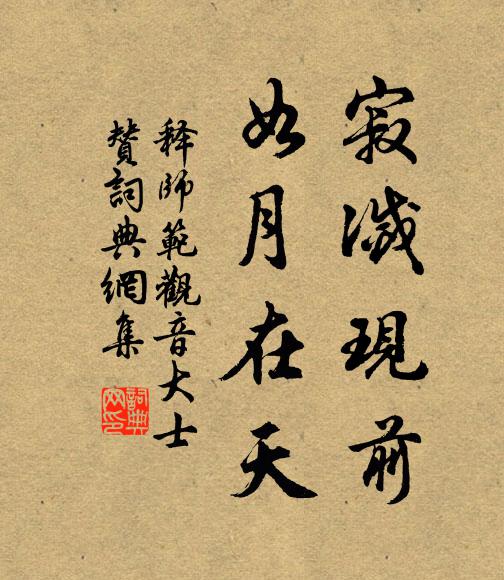 寂滅現前
如月在天
释師範觀音大士
贊詞典網集
詞典網印